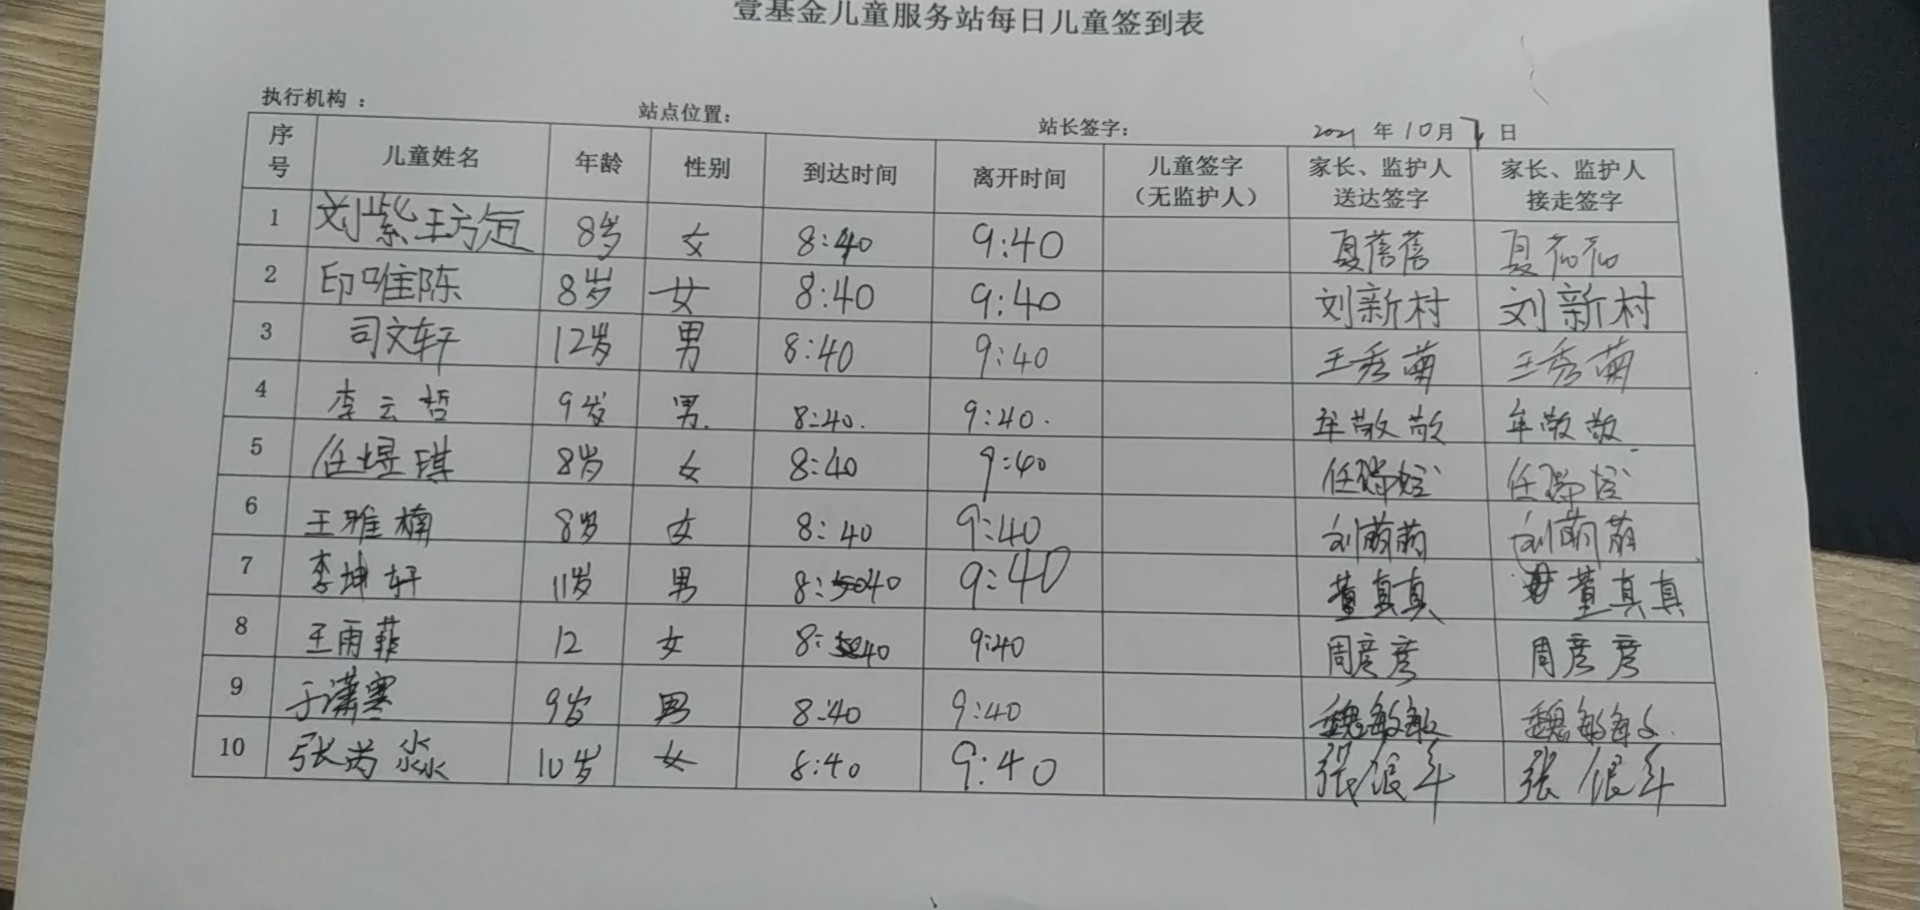 壹基金儿童服务站每日儿童签到表
执行机构： 站点位置： 站长签字： 2021 年 10 月 日
序号 儿童姓名 年龄 性别 到达时间 离开时间 儿童签字（无监护人） 家长、监护人送达签字 家长、监护人接走签字
1 刘紫 8岁 女 8:40 9:40 夏蓓蓓 夏
2 印唯陈 8岁 女 8:40 9:40 刘新村 刘新村
3 司文轩 12岁 男 8:40 9:40 王秀菊 王秀菊
4 李云哲 9岁 男. 8:40. 9:40. 年敬敬 年敬敬
5 任煜琪 8岁 女 8:40 9:40 任 任
6 王雅楠 8岁 女 8:40 9:40 刘萌萌 刘萌萌
7 李坤轩 11岁 男 8:40 9:40 董真真 董真真
8 王雨菲 12 女 8:40 9:40 周彦彦 周彦彦
9 于潇寒 9岁 男 8:40 9:40 魏敏敏 魏敏敏.
10 张芮淼 10岁 女 8:40 9:40 张 张